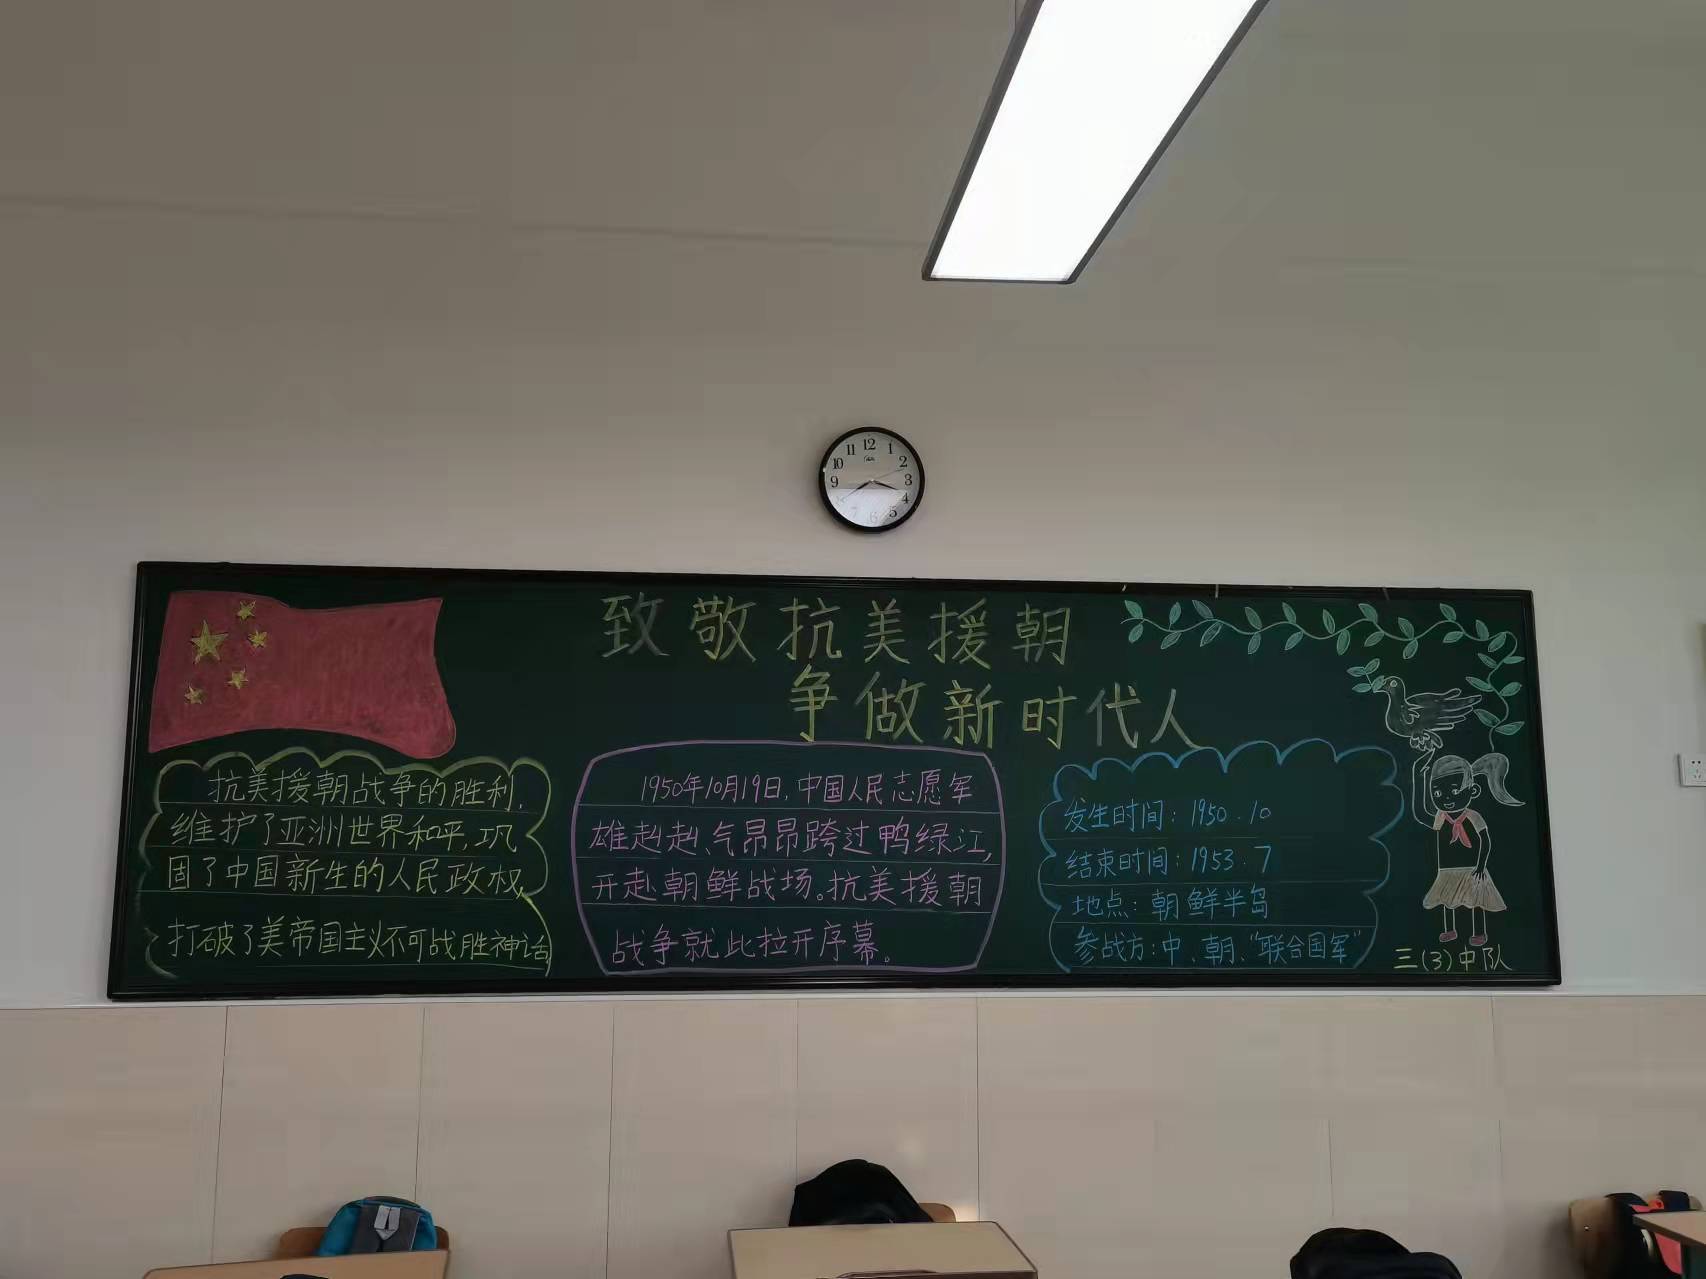 致敬抗美援朝
争做新时代人
抗美援朝战争的胜利,
维护了亚洲世界和平,巩
固了中国新生的人民政权,
打破了美帝国主义不可战胜神话
1950年10月19日,中国人民志愿军
雄赳赳、气昂昂跨过鸭绿江,
开赴朝鲜战场。抗美援朝
战争就此拉开序幕。
发生时间:1950.10
结束时间:1953.7
地点:朝鲜半岛
参战方:中、朝、“联合国军”
三(3)中队
12
1
2
3
4
5
6
7
9
10
11